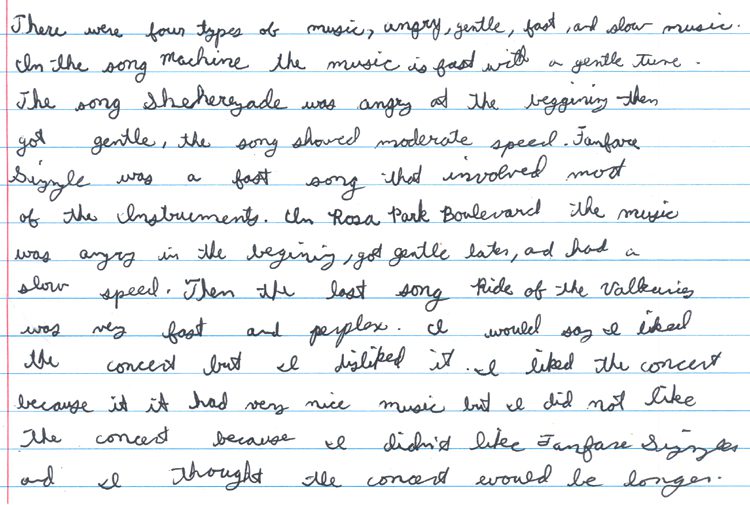 There were four types of music, angry, gentle, fast, and slow music.
In the song Machine the music is fast with a gentle tune.
The song Sheherezade was angry at the beggining then
got gentle, the song showed moderate speed. Fanfare
Sizzle was a fast song that involved most
of the Instruments. In Rosa Park Boulevard the music
was angry in the begining, got gentle later, and had a
slow speed. Then the last song Ride of the Valkuries
was very fast and perplex. I would say I liked
the concert but I disliked it. I liked the concert
because it it had very nice music but I did not like
the concert because I didn't like Fanfare Sizzles
and I thought the concert would be longer.